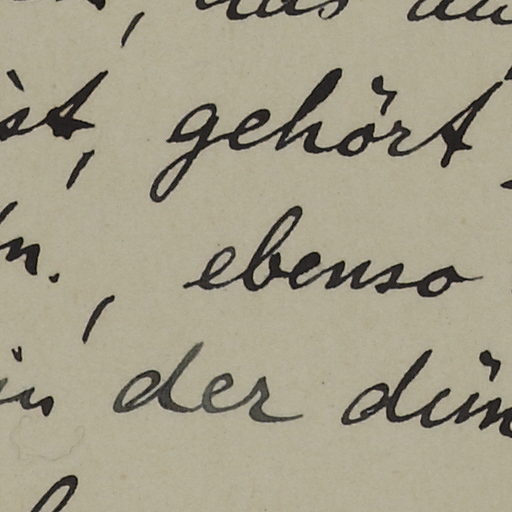 , das
ist, gehört
n., ebenso
in der dün